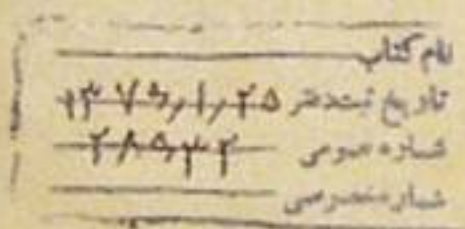 نام کتاب
تاریخ ثبت دفتر ۱۳۷۵/۱/۲۵
شماره عمومی ۲۸۵۳۲
شماره خصوصی